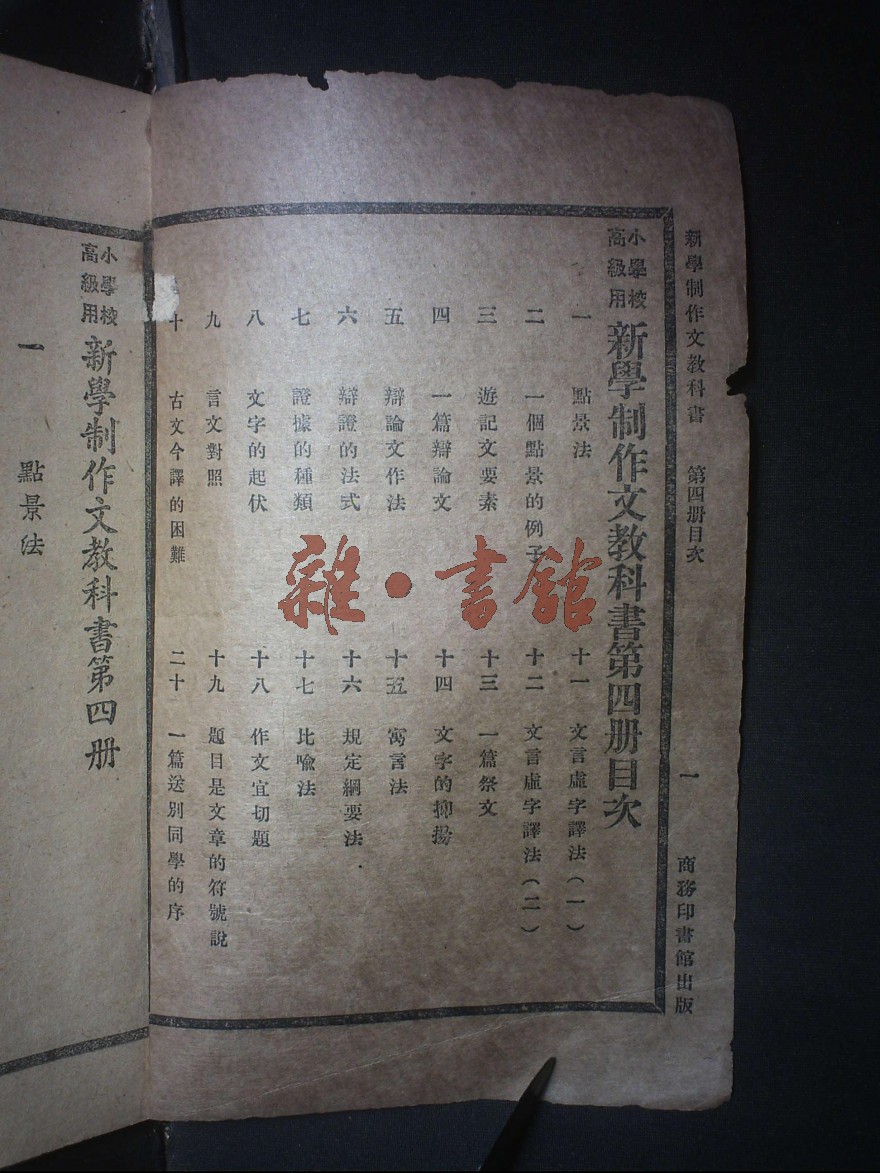 新學制作文教科書　第四册目次　一　商務印書館出版
小學校
高級用
新學制作文教科書第四册目次
一　點景法
二　一個點景的例子
三　遊記文要素
四　一篇辯論文
五　辯論文作法
六　辯證的法式
七　證據的種類
八　文字的起伏
九　言文對照
十　古文今譯的困難
十一　文言虛字譯法(一)
十二　文言虛字譯法(二)
十三　一篇祭文
十四　文字的抑揚
十五　寓言法
十六　規定綱要法
十七　比喻法
十八　作文宜切題
十九　題目是文章的符號說
二十　一篇送別同學的序
小學校
高級用
新學制作文教科書第四册
一　點景法
雜·書館